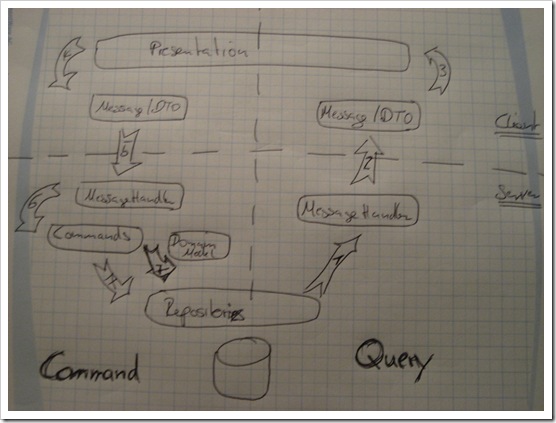 Presentation
3
Message/DTO
Message/DTO
Client
5
2
Server
6
MessageHandler
MessageHandler
Commands
Domain
Model
7
1
Repositories
Command
Query